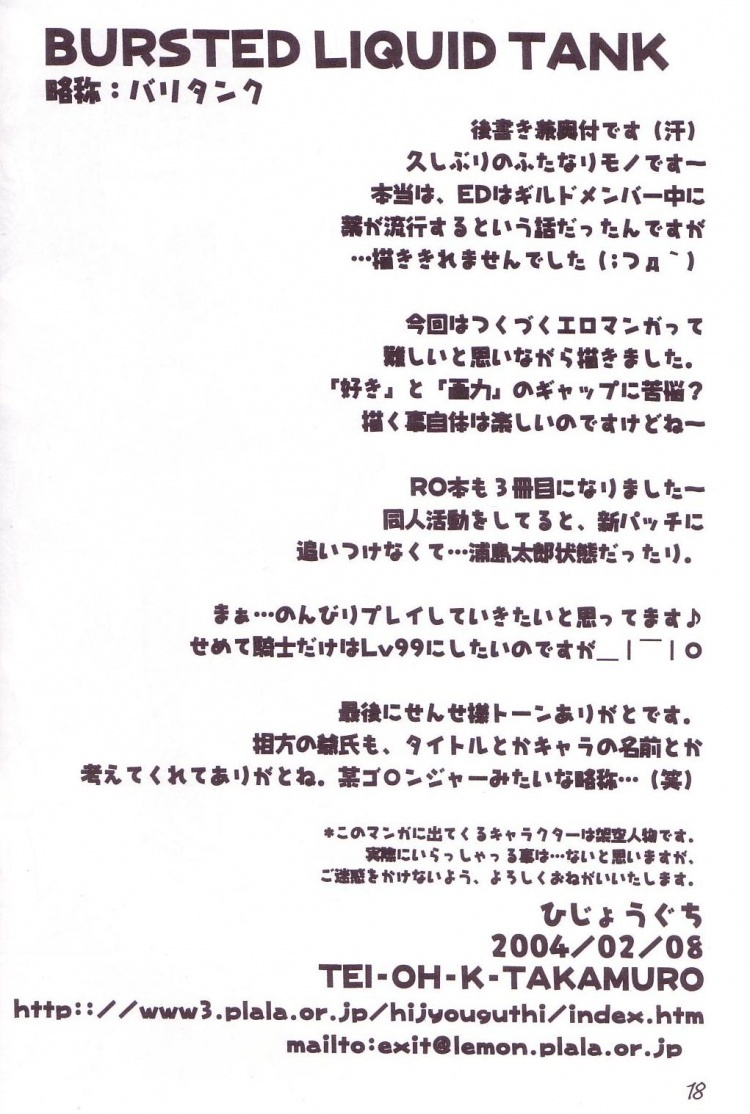 BURSTED LIQUID TANK
略称：バリタンク
後書き兼奥付です（汗）
久しぶりのふたなりモノです〜
本当は、EDはギルドメンバー中に
薬が流行するという話だったんですが
…描ききれませんでした（；つд｀）
今回はつくづくエロマンガって
難しいと思いながら描きました。
『好き』と『画力』のギャップに苦悩？
描く事自体は楽しいのですけどね〜
RO本も３冊目になりました〜
同人活動をしてると、新パッチに
追いつけなくて…浦島太郎状態だったり。
まぁ…のんびりプレイしていきたいと思ってます♪
せめて騎士だけはLv99にしたいのですが＿｜￣｜○
最後にせんせ様トーンありがとです。
相方の爺氏も、タイトルとかキャラの名前とか
考えてくれてありがとね。某ゴ○ンジャーみたいな略称…（笑）
*このマンガに出てくるキャラクターは架空人物です。
実際にいらっしゃっる事は…ないと思いますが、
ご迷惑をかけないよう、よろしくおねがいいたします。
ひじょうぐち
2004/02/08
TEI-OH-K-TAKAMURO
http:://www3.plala.or.jp/hijyouguthi/index.htm
mailto:exit@lemon.plala.or.jp
18